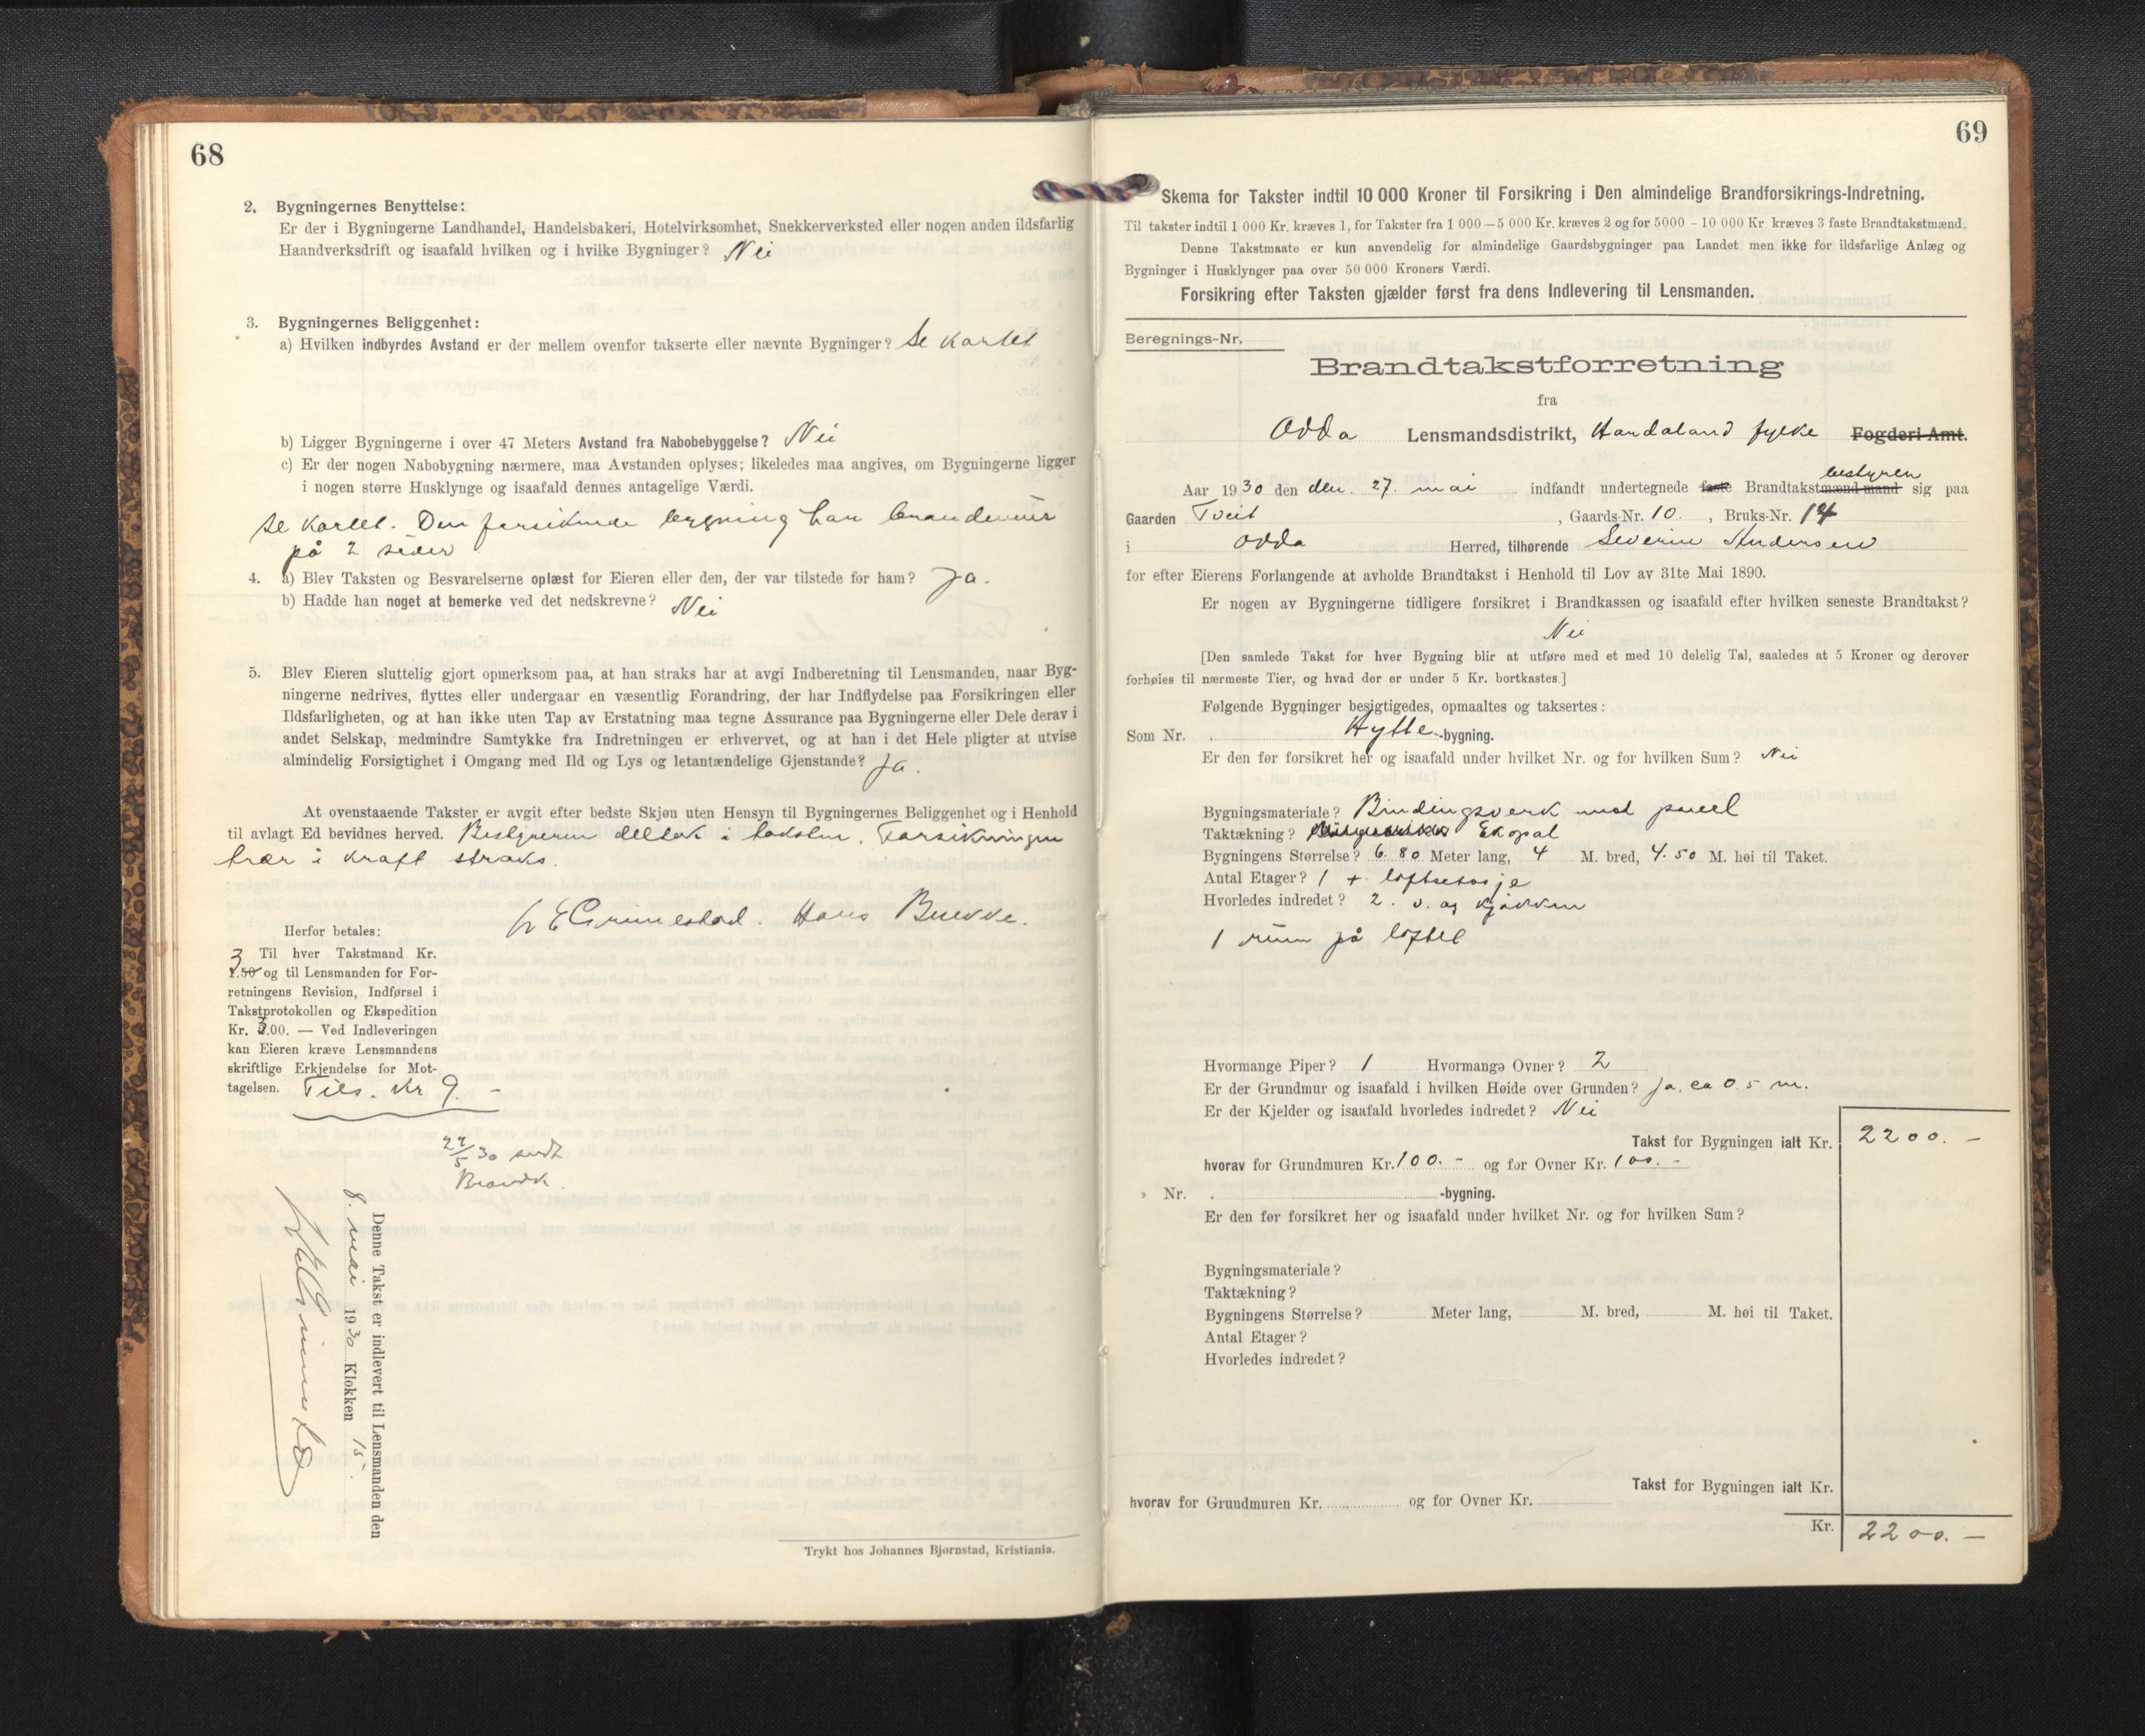 68
2. Bygningernes Benyttelse:
Er der i Bygningerne Landhandel, Handelsbakeri, Hotelvirksomhet, Snekkerverksted eller nogen anden ildsfarlig
Haandverksdrift og isaafald hvilken og i hvilke Bygninger? Nei
3. Bygningernes Beliggenhet:
a) Hvilken indbyrdes Avstand er der mellem ovenfor takserte eller nævnte Bygninger? Se kartet
b) Ligger Bygningerne i over 47 Meters Avstand fra Nabobebyggelse? Nei
c) Er der nogen Nabobygning nærmere, maa Avstanden oplyses; likeledes maa angives, om Bygningerne ligger
i nogen større Husklynge og isaafald dennes antagelige Værdi.
Se kartet. Den forsikrede bygning har brandmur
på 2 sider
4. a) Blev Taksten og Besvarelserne oplæst for Eieren eller den, der var tilstede for ham? Ja.
b) Hadde han noget at bemerke ved det nedskrevne? Nei
5. Blev Eieren sluttelig gjort opmerksom paa, at han straks har at avgi Indberetning til Lensmanden, naar Byg-
ningerne nedrives, flyttes eller undergaar en væsentlig Forandring, der har Indflydelse paa Forsikringen eller
Ildsfarligheten, og at han ikke uten Tap av Erstatning maa tegne Assurance paa Bygningerne eller Dele derav i
andet Selskap, medmindre Samtykke fra Indretningen er erhvervet, og at han i det Hele pligter at utvise
almindelig Forsigtighet i Omgang med Ild og Lys og letantændelige Gjenstande? Ja.
At ovenstaaende Takster er avgit efter bedste Skjøn uten Hensyn til Bygningernes Beliggenhet og i Henhold
til avlagt Ed bevidnes herved. Bestyreren deltok i taksten. Forsikringen
trær i kraft straks.
Grimestad. Hans Bukke.
Herfor betales:
3
Til hver Takstmand Kr.
1.50 og til Lensmanden for For-
retningens Revision, Indførsel i
Takstprotokollen og Ekspedition
Kr. 3.00. — Ved Indleveringen
kan Eieren kræve Lensmandens
skriftlige Erkjendelse for Mot-
tagelsen. Tils. kr 9. -
30 sendt
Brandk.
Denne Takst er indlevert til Lensmanden den
8. mai 1930 Klokken 15.
Trykt hos Johannes Bjørnstad, Kristiania.
69
Skema for Takster indtil 10 000 Kroner til Forsikring i Den almindelige Brandforsikrings-Indretning.
Til takster indtil 1 000 Kr. kræves 1, for Takster fra 1 000 – 5 000 Kr. kræves 2 og for 5000 - 10 000 Kr kræves 3 faste Brandtakstmænd.
Denne Takstmaate er kun anvendelig for almindelige Gaardsbygninger paa Landet men ikke for ildsfarlige Anlæg og
Bygninger i Husklynger paa over 50 000 Kroners Værdi.
Forsikring efter Taksten gjælder først fra dens Indlevering til Lensmanden.
Beregnings-Nr.
Brandtakstforretning
fra
Odda Lensmandsdistrikt, Hordaland fylke Fogderi Amt.
bestyrer
Aar 1930 den den. 27. mai indfandt undertegnede faste Brandtakstmænd mand sig paa
Gaarden Tveit, Gaards-Nr. 10., Bruks-Nr. 14
i Odda Herred, tilhørende Severin Andersen
for efter Eierens Forlangende at avholde Brandtakst i Henhold til Lov av 31te Mai 1890.
Er nogen av Bygningerne tidligere forsikret i Brandkassen og isaafald efter hvilken seneste Brandtakst?
Nei
[Den samlede Takst for hver Bygning blir at utføre med et med 10 delelig Tal, saaledes at 5 Kroner og derover
forhøies til nærmeste Tier, og hvad der er under 5 Kr. bortkastes.]
Følgende Bygninger besigtigedes, opmaaltes og taksertes:
Som Nr. Hytte-bygning.
Er den før forsikret her og isaafald under hvilket Nr. og for hvilken Sum? Nei
Bygningsmateriale? Bindingsverk med panel
Taktækning? Ekopal
Bygningens Størrelse? 6.80 Meter lang, 4 M. bred, 4.50 M. høi til Taket.
Antal Etager? 1 + loftsetasje
Hvorledes indredet? 2. v. og kjøkken
1 rum på loftet
Hvormange Piper? 1 Hvormange Ovner? 2
Er der Grundmur og isaafald i hvilken Høide over Grunden? Ja. ca 0.5 m.
Er der Kjelder og isaafald hvorledes indredet? Nei
Takst for Bygningen ialt Kr. 2200. -
hvorav for Grundmuren Kr. 100. - og for Ovner Kr. 100. -
» Nr. -bygning.
Er den før forsikret her og isaafald under hvilket Nr. og for hvilken Sum?
Bygningsmateriale?
Taktækning?
Bygningens Størrelse? Meter lang, M. bred, M. høi til Taket.
Antal Etager?
Hvorledes indredet?
Takst for Bygningen ialt Kr.
hvorav for Grundmuren Kr. og for Ovner Kr.
Kr. 2200. -